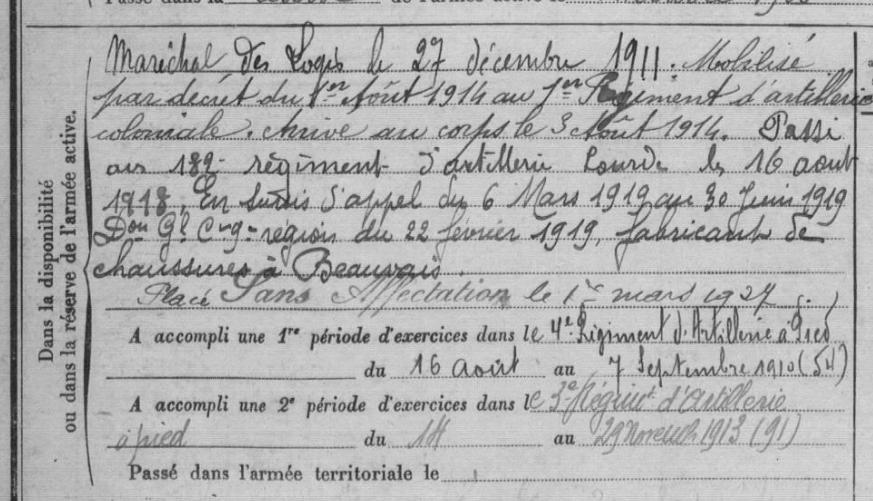 de l'armée active le
Maréchal des Logis le 27 décembre 1911. Mobilisé
par décret du 1er Août 1914 au 1er Régiment d'artillerie
coloniale. Arrivé au corps le 3 Août 1914. Passé
au 182e régiment d'artillerie Lourde le 16 aout
1918. En sursis d'appel du 6 Mars 1919 au 30 Juin 1919
Don Gl C 9e région du 22 février 1919, fabricant de
chaussures à Beauvais.
Placé Sans Affectation le 1er mars 1927.
Dans la disponibilité
ou dans la réserve de l'armée active.
A accompli une 1re période d'exercices dans le 4e Régiment d'Artillerie à Pied
du 16 août au 7 Septembre 1910 (54)
A accompli une 2e période d'exercices dans le 3e Régimt d'Artillerie
à pied du 14 au 29 Novembre 1913 (91)
Passé dans l'armée territoriale le